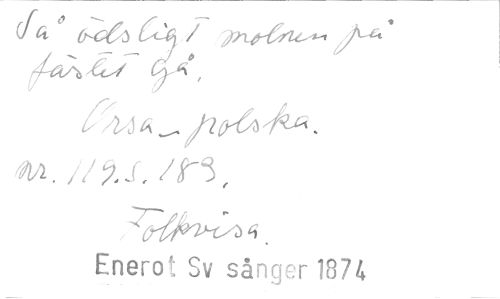 Så ödsligt molnen på
fästet gå.
Orsa-polska.
nr. 119.s. 189.
Folkvisa.
Enerot Sv sånger 1874